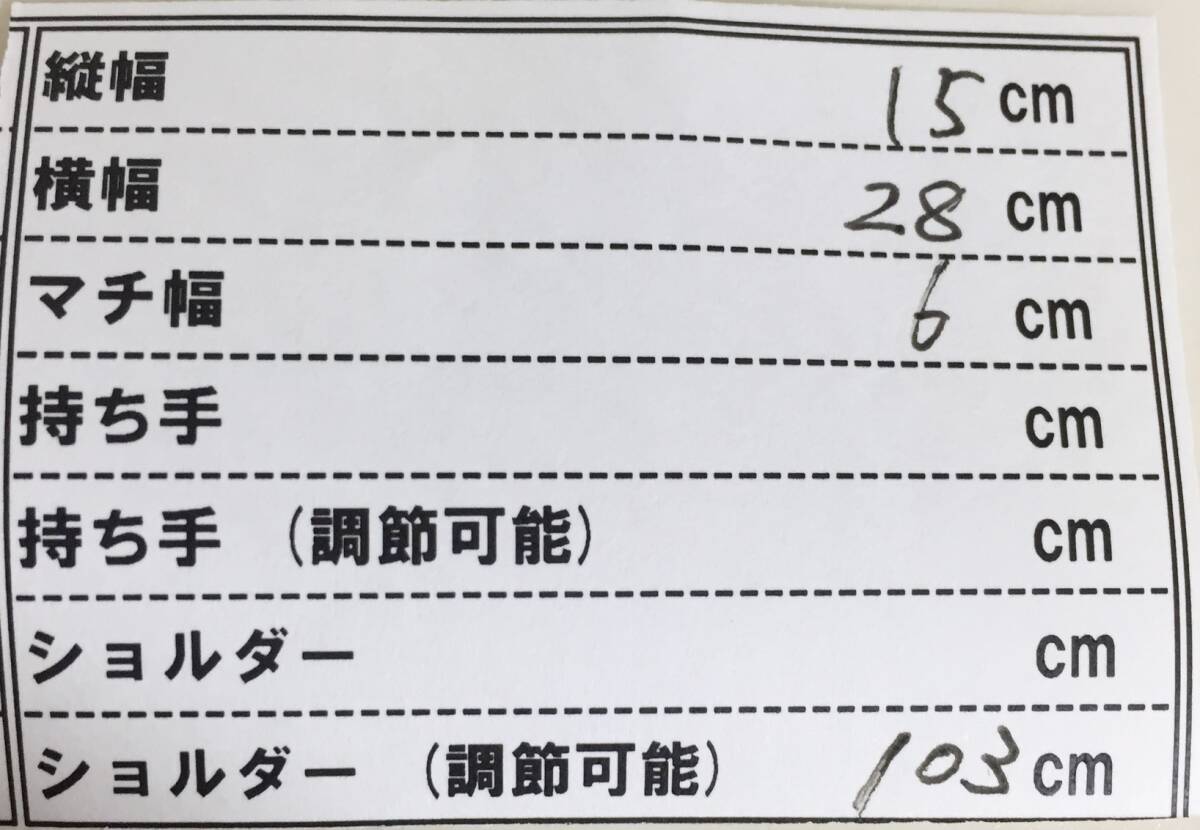 縦幅 15 cm
横幅 28 cm
マチ幅 6 cm
持ち手 cm
持ち手 (調節可能) cm
ショルダー cm
ショルダー (調節可能) 103 cm